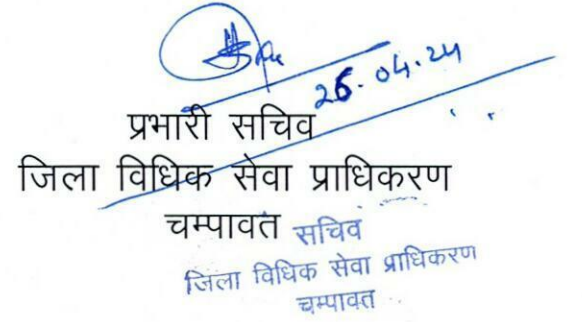 26.04.24
प्रभारी सचिव
जिला विधिक सेवा प्राधिकरण
चम्पावत
सचिव
जिला विधिक सेवा प्राधिकरण
चम्पावत